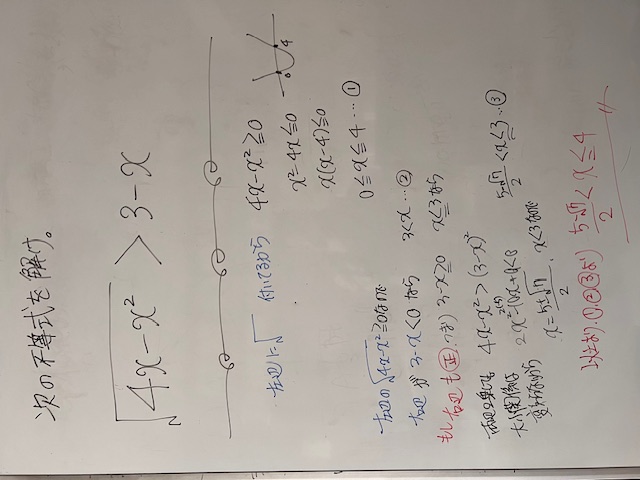 次の不等式を解け。
√4x-x² > 3-x
左辺に√ 付いてるから 4x-x²≧0
x²-4x≦0
x(x-4)≦0
0≦x≦4 … ①
0 4
左辺の√4x-x²≧0なので
右辺が 3-x<0 なら 3<x … ②
もし右辺も正、つまり 3-x≧0 x≦3なら
両辺2乗しても 4x-x²>(3-x)²
大小関係は 2x²-10x+9<0
変わらないから x=5±√7/2, x≦3なので 5-√7/2<x≦3 … ③
以上より、①、②、③より 5-√7/2<x≦4